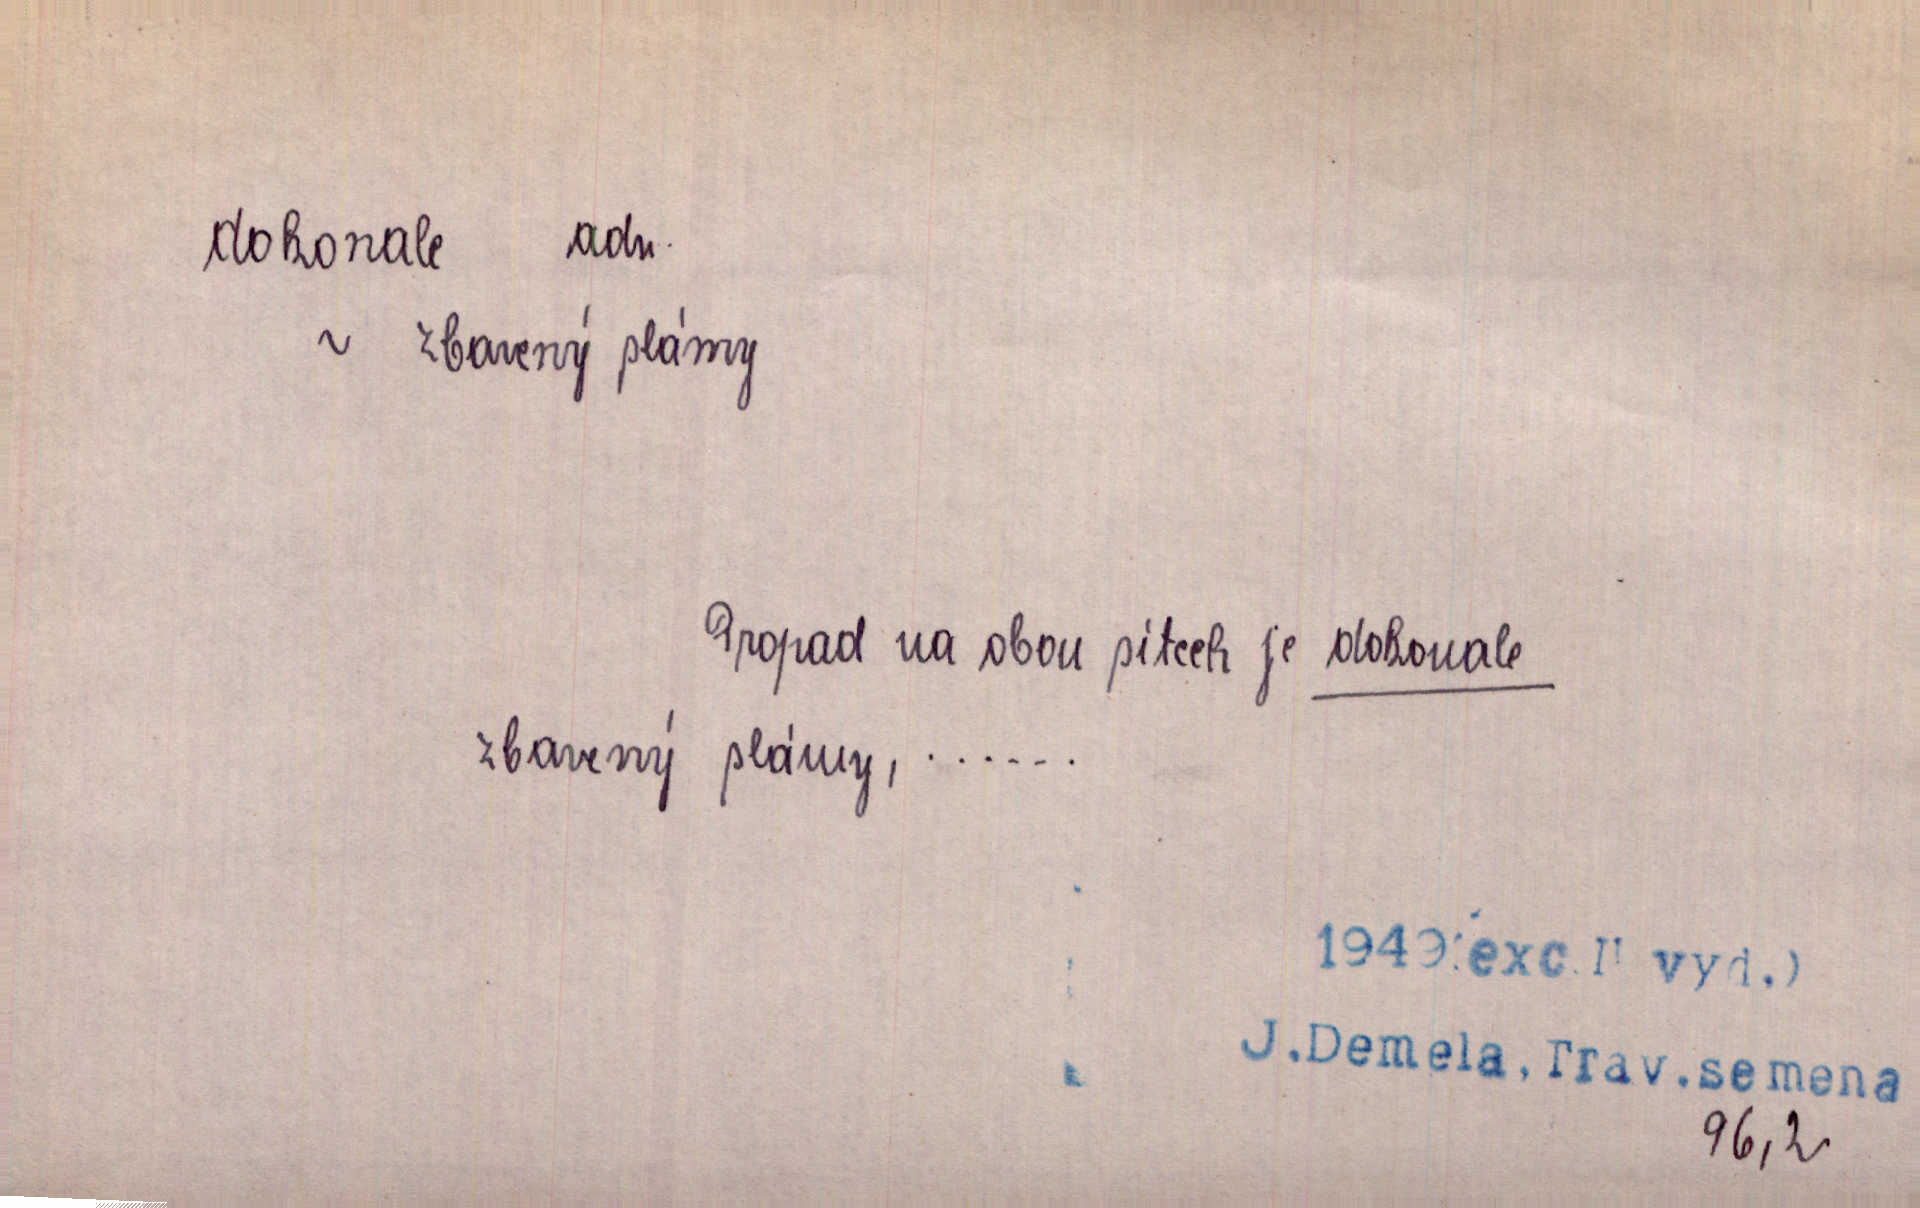 dokonale adv.
~ zbavený plámy
Propad na obou sítech je dokonale
zbavený plámy, . . . . . .
1949(exc.II vyd.)
J.Demela,Trav.semena
96,2